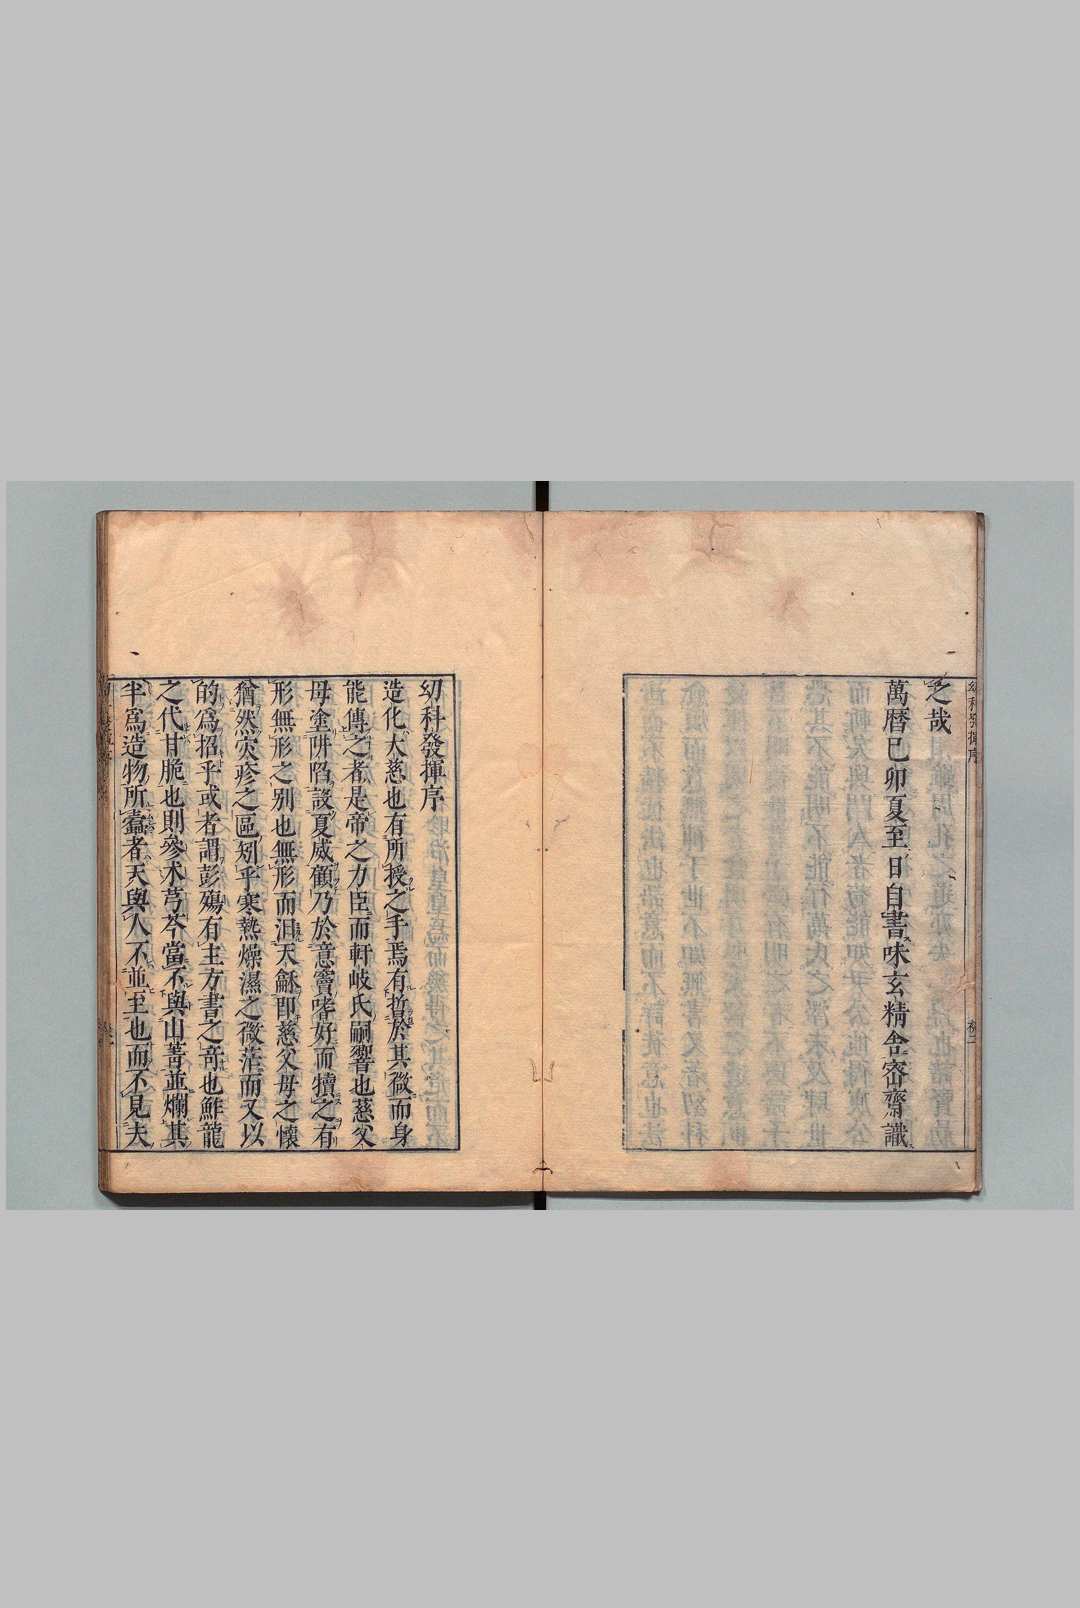 之哉
萬暦己卯夏至日自書味玄精舍密齋識
幼科發揮序
幼科發揮序
造化大慈也有所授之手焉有哲於其微而身
能傳之者是帝之力臣而軒岐氏嗣響也慈父
母塗阱陷設夏威顧乃於意竇嗜好而犢之有
形無形之别也無形而汨天龢即慈父母之懷
猶然灾疹之區矧乎寒熱燥濕之微茫而又以
的爲招乎或者謂彭殤有主方書之竒也鮓龍
之代甘脆也則參术芎芩當不與山菁並爛其
半爲造物所蠹者天與人不並至也而不見夫